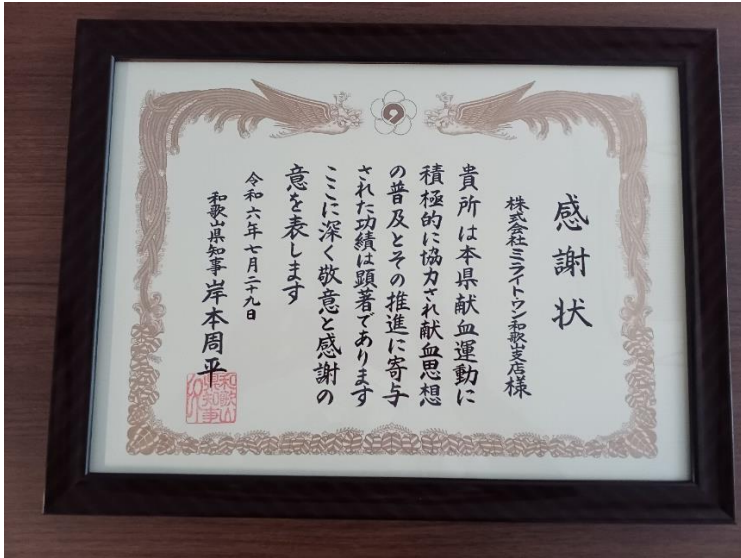 感謝状
株式会社ミライトワン和歌山支店様
貴所は本県献血運動に
積極的に協力され献血思想
の普及とその推進に寄与
された功績は顕著であります
ここに深く敬意と感謝の
意を表します
令和六年七月二十九日
和歌山県知事岸本周平
和歌山
県知事
之印